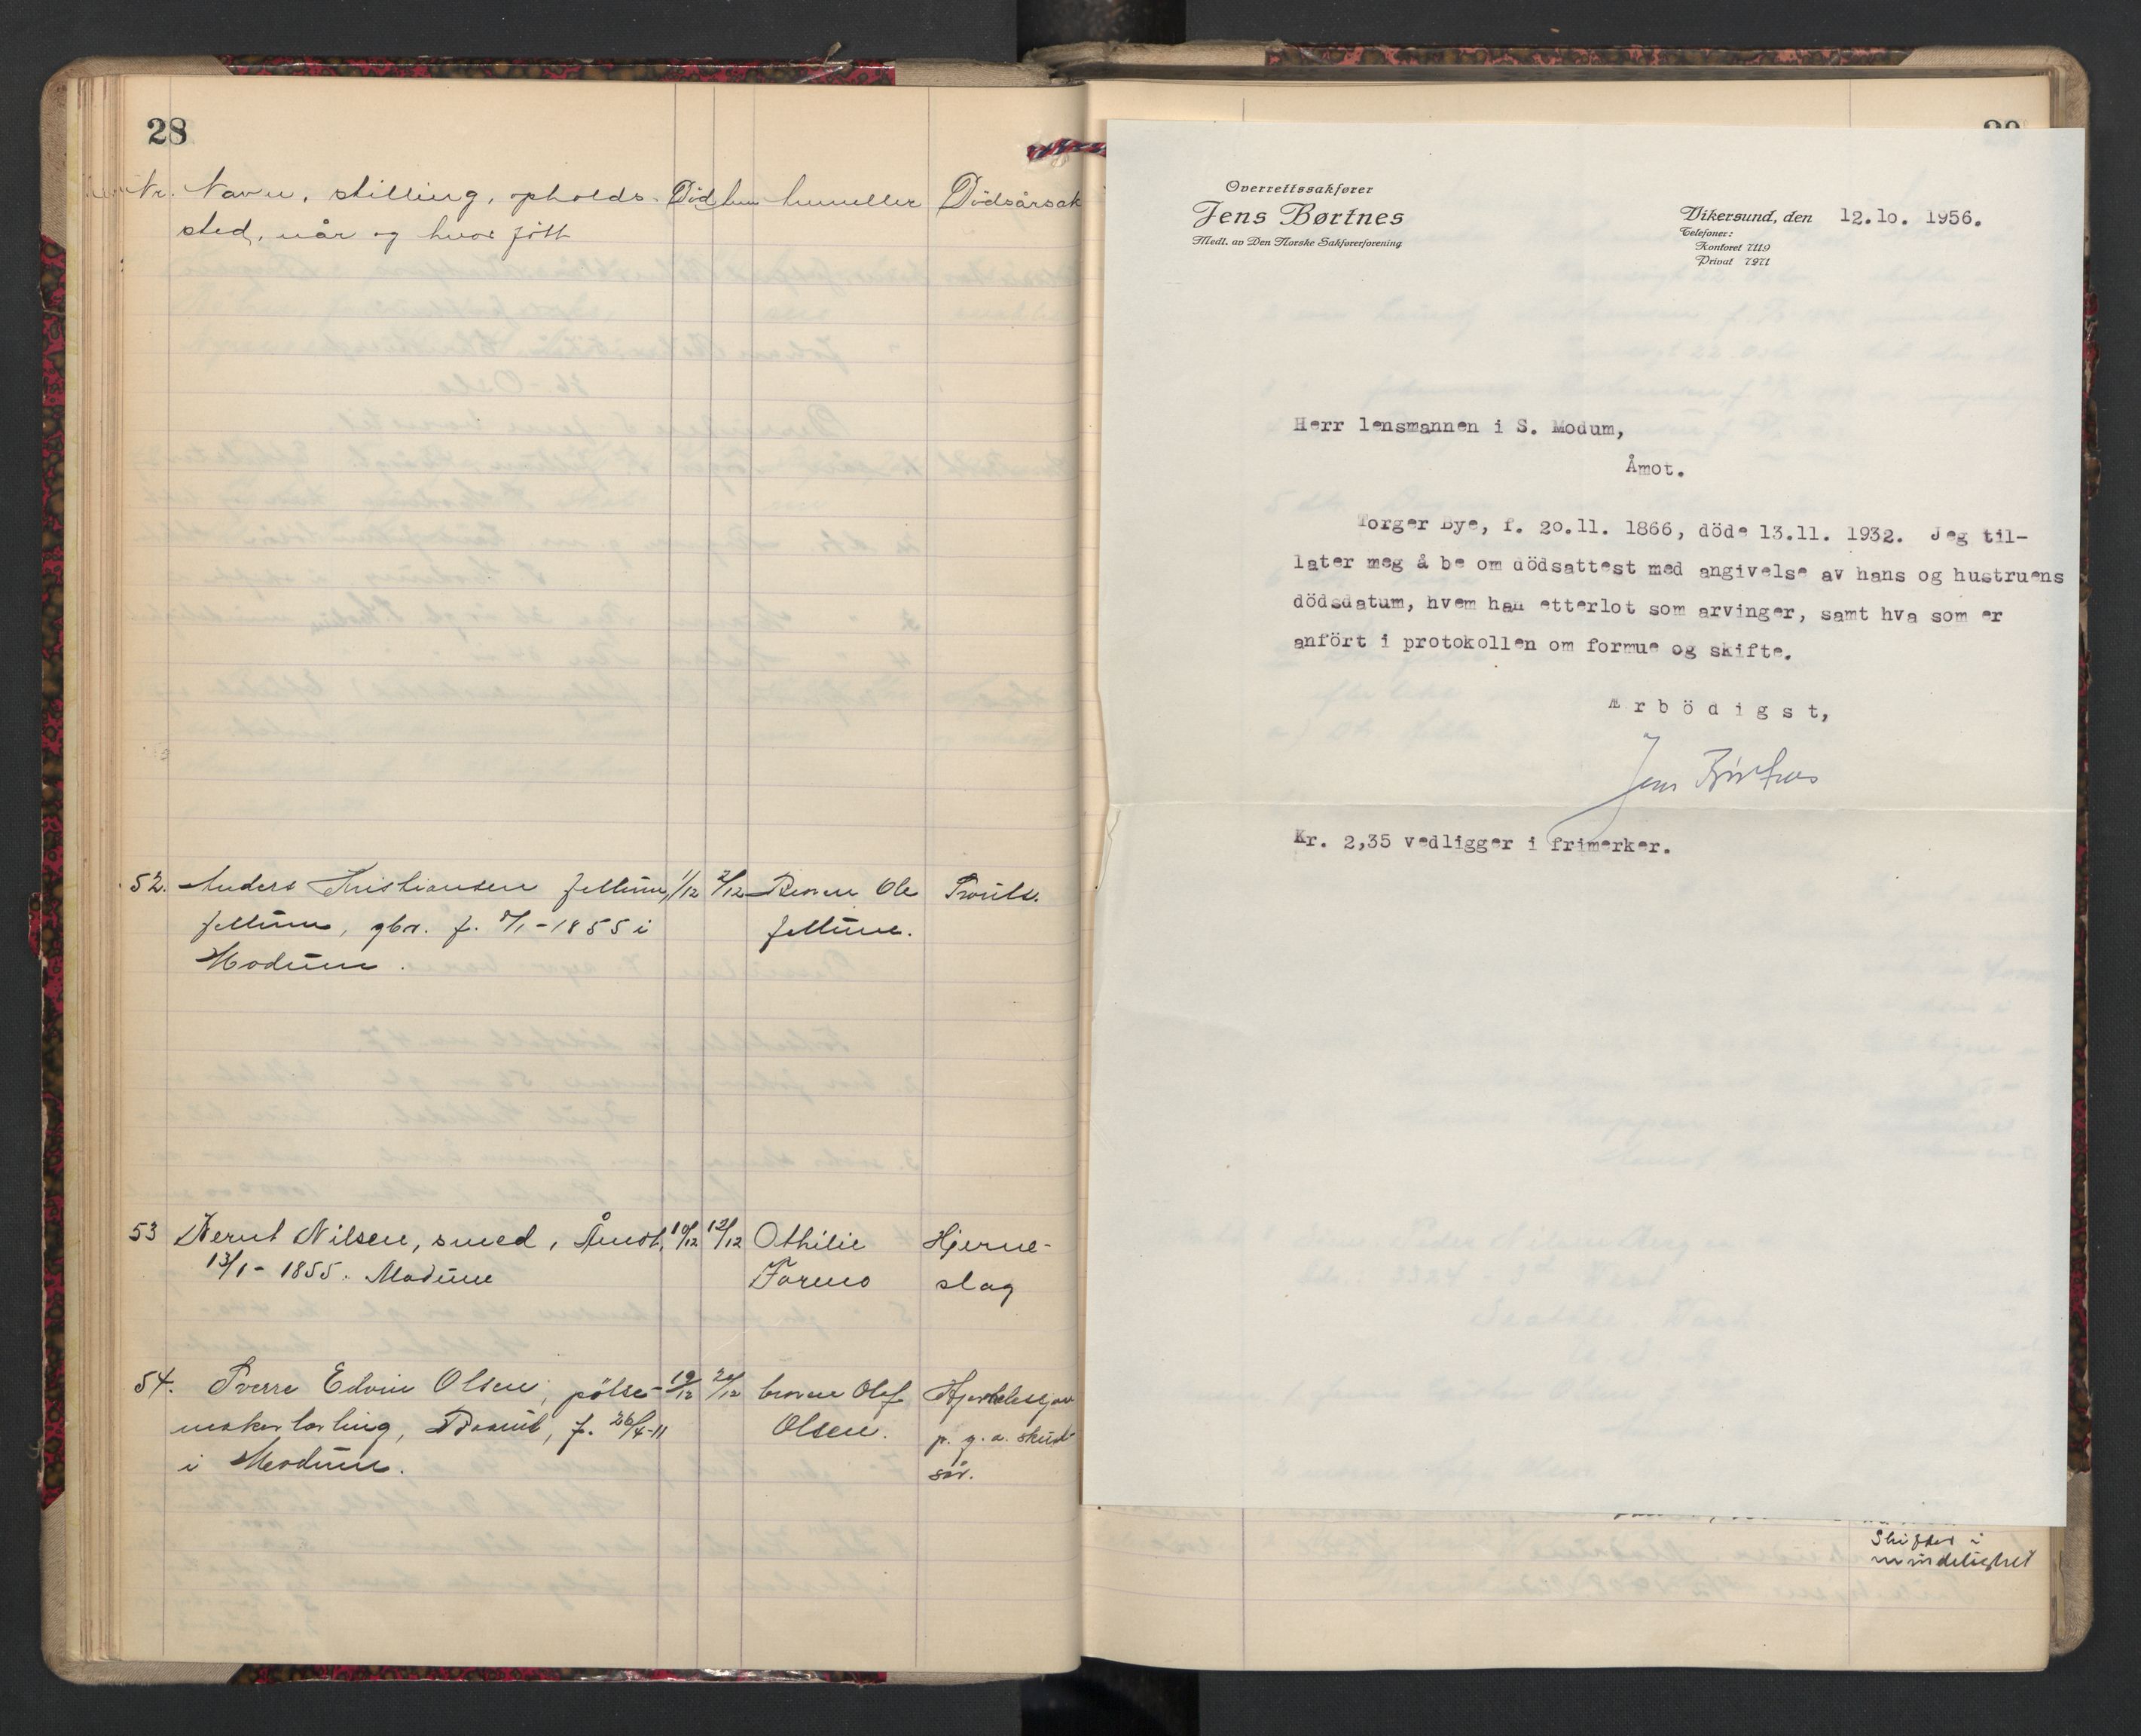 28
Nr. Navn, stilling, opholds- Död Anmeller Dödsårsak
sted, når og hvor fött
52. Anders Kristiansen Jellum, 1/12 2/12 Ole
Jellum, gbr. f. 1855 i Jellum.
Modum.
53 Bernt Nilsen, smed, Åmot, 10/12 12/12 Othilie Hjerne-
13/1- 1855. Modum Formo slag
54. Sverre Edvin Olsen, pölse- 19/12 20/12 broren Olaf
makerlærling, f. 26/4-11 Olsen. p. g. a. skud-
i Modum. sår.
Overrettssakfører
Jens Børtnes
Medl. av Den Norske Sakførerforening
Vikersund, den 12.10. 1956.
Telefoner:
Kontoret 7119
Privat 7271
Herr lensmannen i S. Modum,
Åmot.
Torger Bye, f. 20.11. 1866, döde 13.11. 1932. Jeg til-
later meg å be om dödsattest med angivelse av hans og hustruens
dödsdatum, hvem han etterlot som arvinger, samt hva som er
anfört i protokollen om formue og skifte.
Ærbödigst,
Jens Børtnes
Kr. 2,35 vedligger i frimerker.
Skiftet i
mindelighet